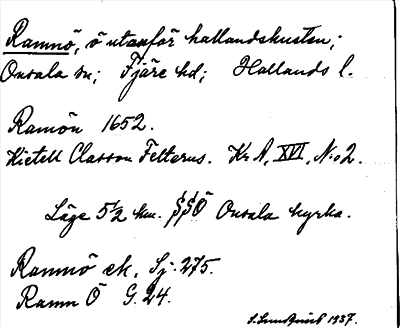 Ramnö, ö utanför hallandskusten;
Onsala sn; Fjäre hd; Hallands l.
Ramön 1652.
Kietell Classon Felterus. Kr A, XVI, N:o 2.
Läge 5 1/2 km. SSÖ Onsala kyrka.
Ramnö ek. Sj. 275.
Ramn Ö G. 24.
1937.